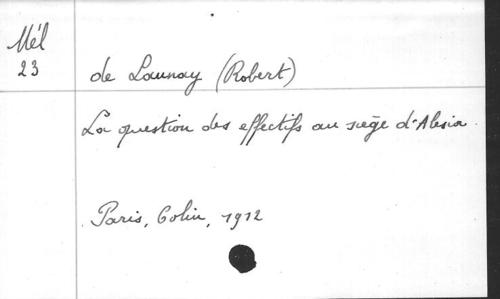 Mél
23
de Launay (Robert)
La question des effectifs au siège d'Alesia.
Paris, Colin, 1912